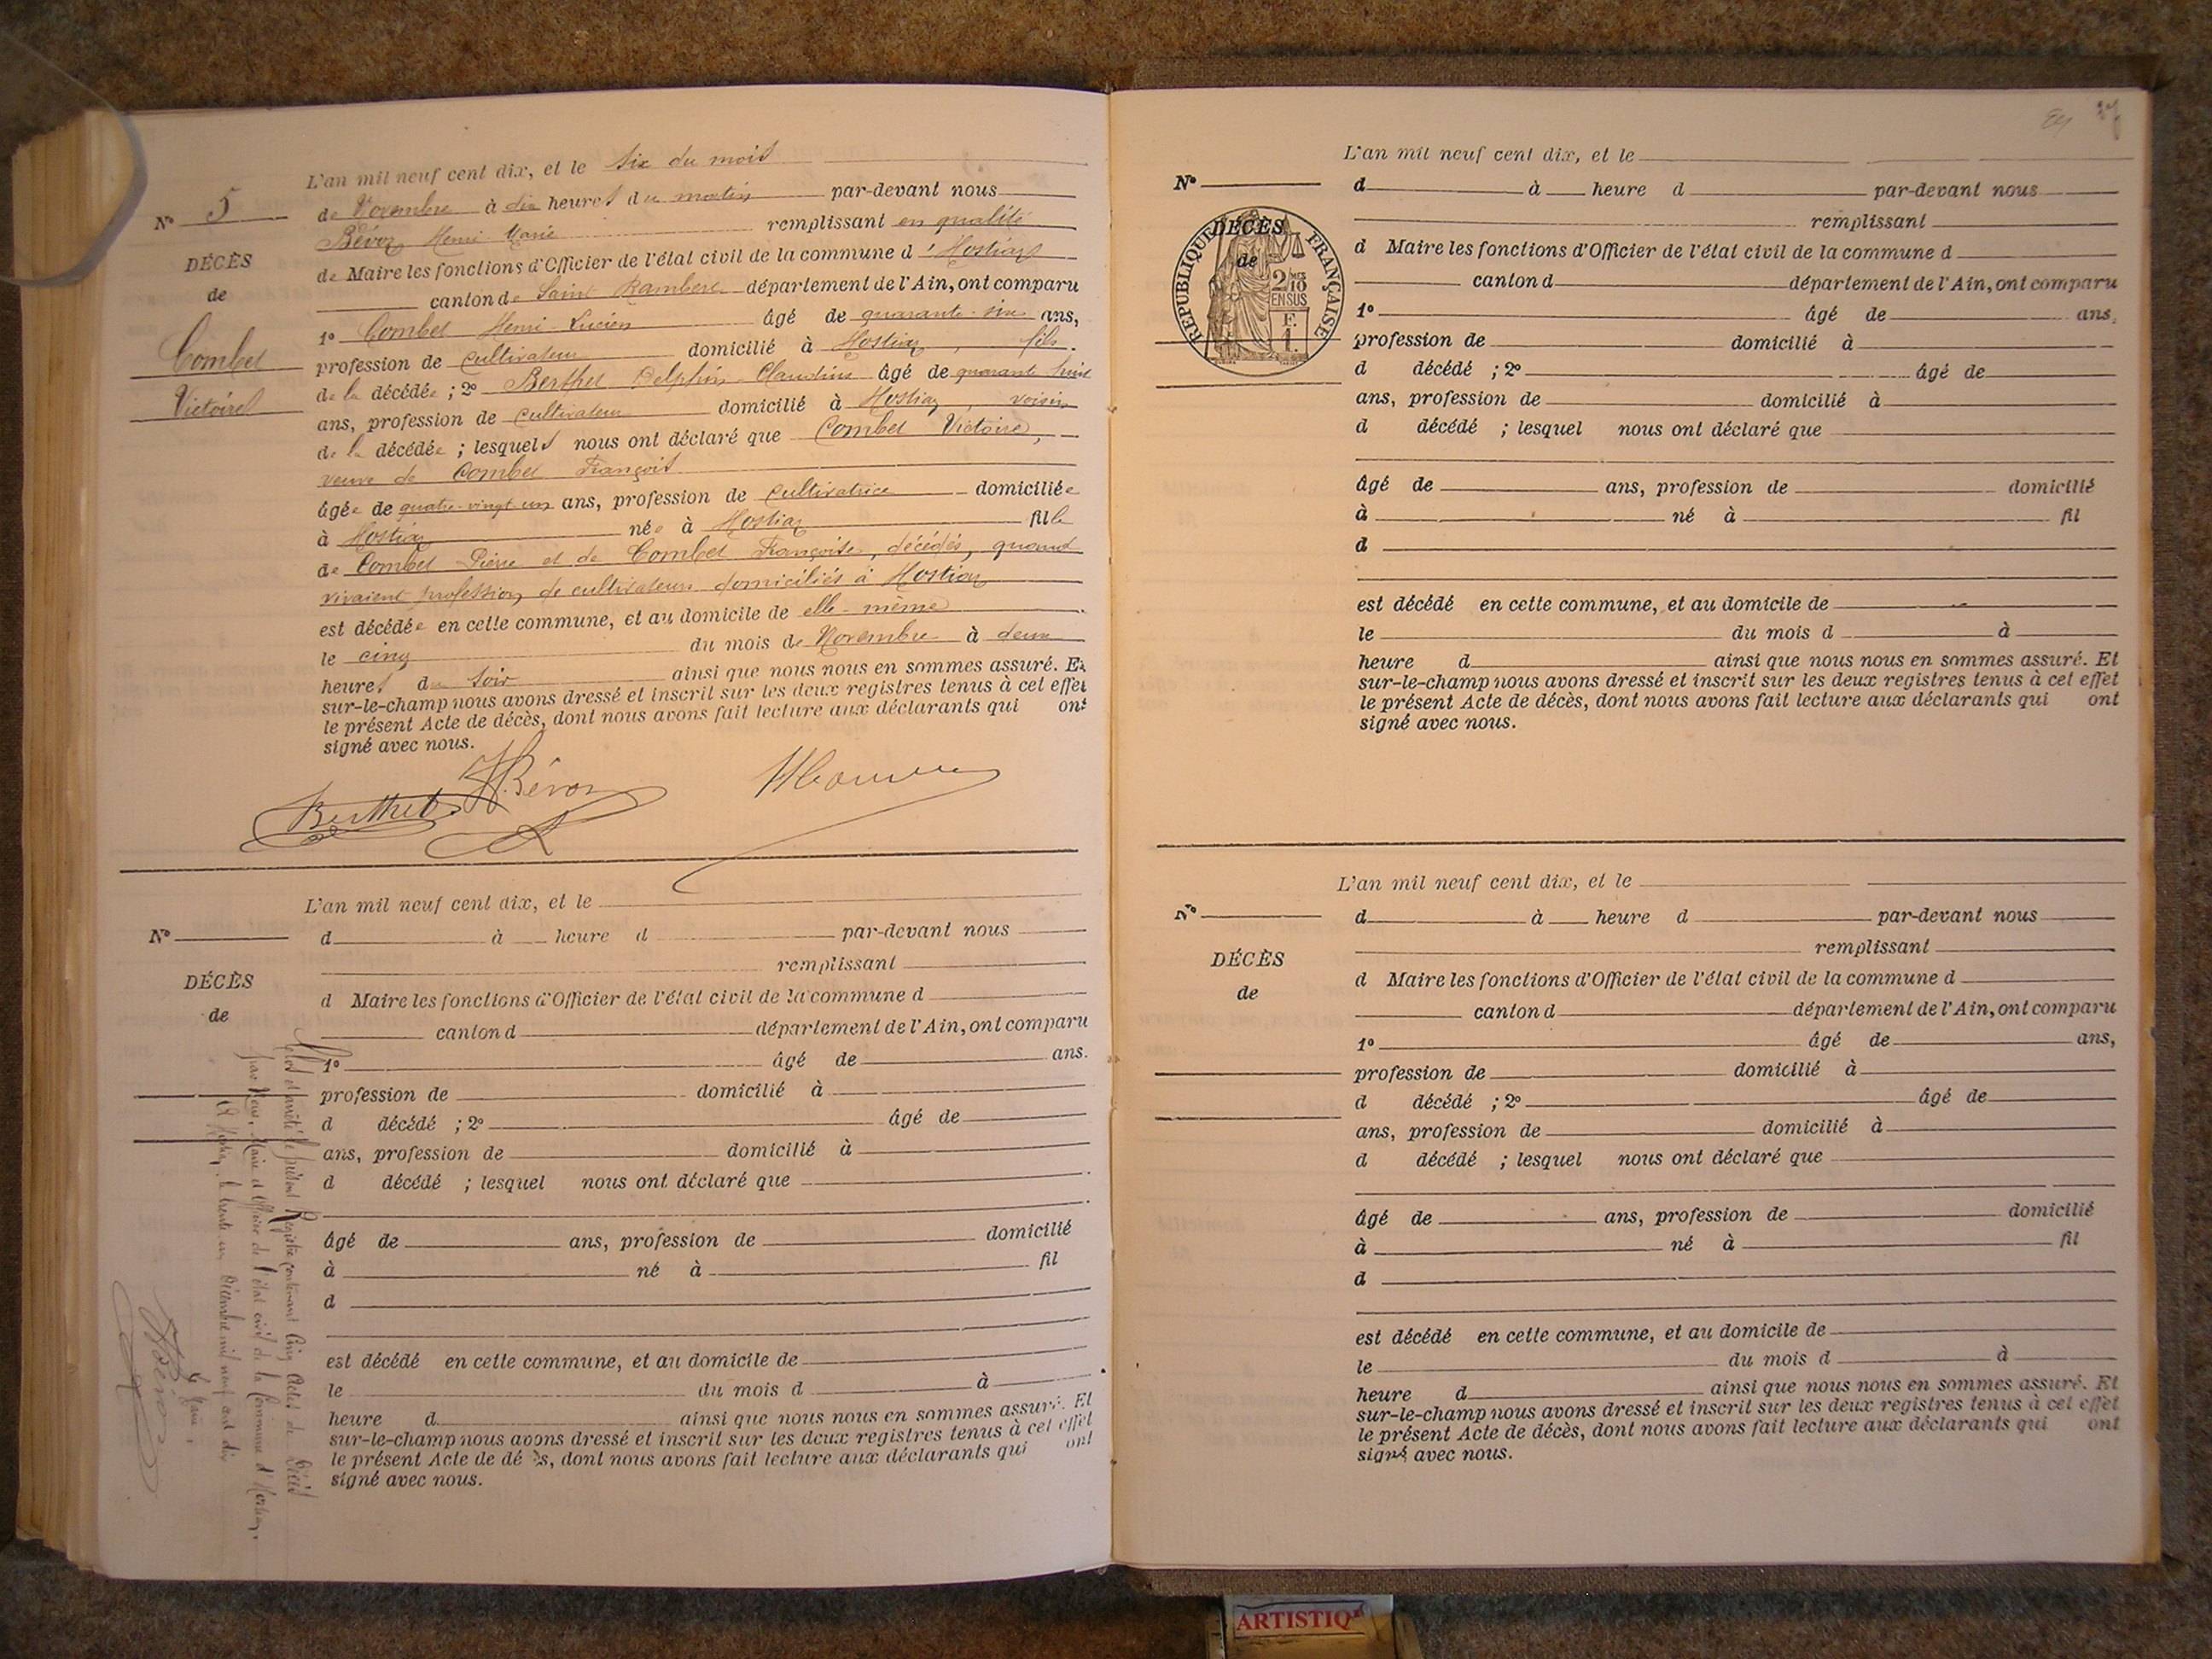 N° 5
DÉCÈS
de
Combet
Victoire
L'an mil neuf cent dix, et le six du mois
de Novembre à dix heures du matin par-devant nous
Bévoz Henri Marie remplissant en qualité
de Maire les fonctions d'Officier de l'état civil de la commune d'Hostiaz
canton de Saint Rambert département de l'Ain, ont comparu
1° Combet Henri Lucien âgé de quarante-six ans,
profession de cultivateur domicilié à Hostiaz, fils
de la décédée ; 2° Berthet Delphin Claudius âgé de quarant huit
ans, profession de cultivateur domicilié à Hostiaz, voisin
de la décédée ; lesquels nous ont déclaré que Combet Victoire,
veuve de Combet François
âgée de quatre-vingt-un ans, profession de cultivatrice domiciliée
à Hostiaz née à Hostiaz fille
de Combet Pierre et de Combet Françoise, décédés, quand
vivaient profession de cultivateurs domiciliés à Hostiaz
est décédée en cette commune, et au domicile de elle-même
le cinq du mois de Novembre à deux
heures du soir ainsi que nous nous en sommes assuré. Et
sur-le-champ nous avons dressé et inscrit sur les deux registres tenus à cet effet
le présent Acte de décès, dont nous avons fait lecture aux déclarants qui ont
signé avec nous.
Berthet H. Bévoz
N°
DÉCÈS
de
L'an mil neuf cent dix, et le
d à heure d par-devant nous
remplissant
d Maire les fonctions d'Officier de l'état civil de la commune d
canton d département de l'Ain, ont comparu
1° âgé de ans.
profession de domicilié à
d décédé ; 2° âgé de
ans, profession de domicilié à
d décédé ; lesquel nous ont déclaré que
âgé de ans, profession de domicilié
à né à fil
d
est décédé en cette commune, et au domicile de
le du mois d à
heure d ainsi que nous nous en sommes assuré. Et
sur-le-champ nous avons dressé et inscrit sur les deux registres tenus à cet effet
le présent Acte de dé ès, dont nous avons fait lecture aux déclarants qui ont
signé avec nous.
Clos et arrêté le présent Registre contenant Cinq Actes de Décès
par Nous, Maire et Officier de l'état civil de la Commune d'Hostiaz,
A Hostiaz, le trente un Décembre mil neuf cent dix
Le Maire,
H. Bévoz
N°
DÉCÈS
de
RÉPUBLIQUE FRANÇAISE
2/10 MES
EN SUS
F.
1.
L'an mil neuf cent dix, et le
d à heure d par-devant nous
remplissant
d Maire les fonctions d'Officier de l'état civil de la commune d
canton d département de l'Ain, ont comparu
1° âgé de ans,
profession de domicilié à
d décédé ; 2° âgé de
ans, profession de domicilié à
d décédé ; lesquel nous ont déclaré que
âgé de ans, profession de domicilié
à né à fil
d
est décédé en cette commune, et au domicile de
le du mois d à
heure d ainsi que nous nous en sommes assuré. Et
sur-le-champ nous avons dressé et inscrit sur les deux registres tenus à cet effet
le présent Acte de décès, dont nous avons fait lecture aux déclarants qui ont
signé avec nous.
N°
DÉCÈS
de
L'an mil neuf cent dix, et le
d à heure d par-devant nous
remplissant
d Maire les fonctions d'Officier de l'état civil de la commune d
canton d département de l'Ain, ont comparu
1° âgé de ans,
profession de domicilié à
d décédé ; 2° âgé de
ans, profession de domicilié à
d décédé ; lesquel nous ont déclaré que
âgé de ans, profession de domicilié
à né à fil
d
est décédé en cette commune, et au domicile de
le du mois d à
heure d ainsi que nous nous en sommes assuré. Et
sur-le-champ nous avons dressé et inscrit sur les deux registres tenus à cet effet
le présent Acte de décès, dont nous avons fait lecture aux déclarants qui ont
signé avec nous.
ARTISTIQ